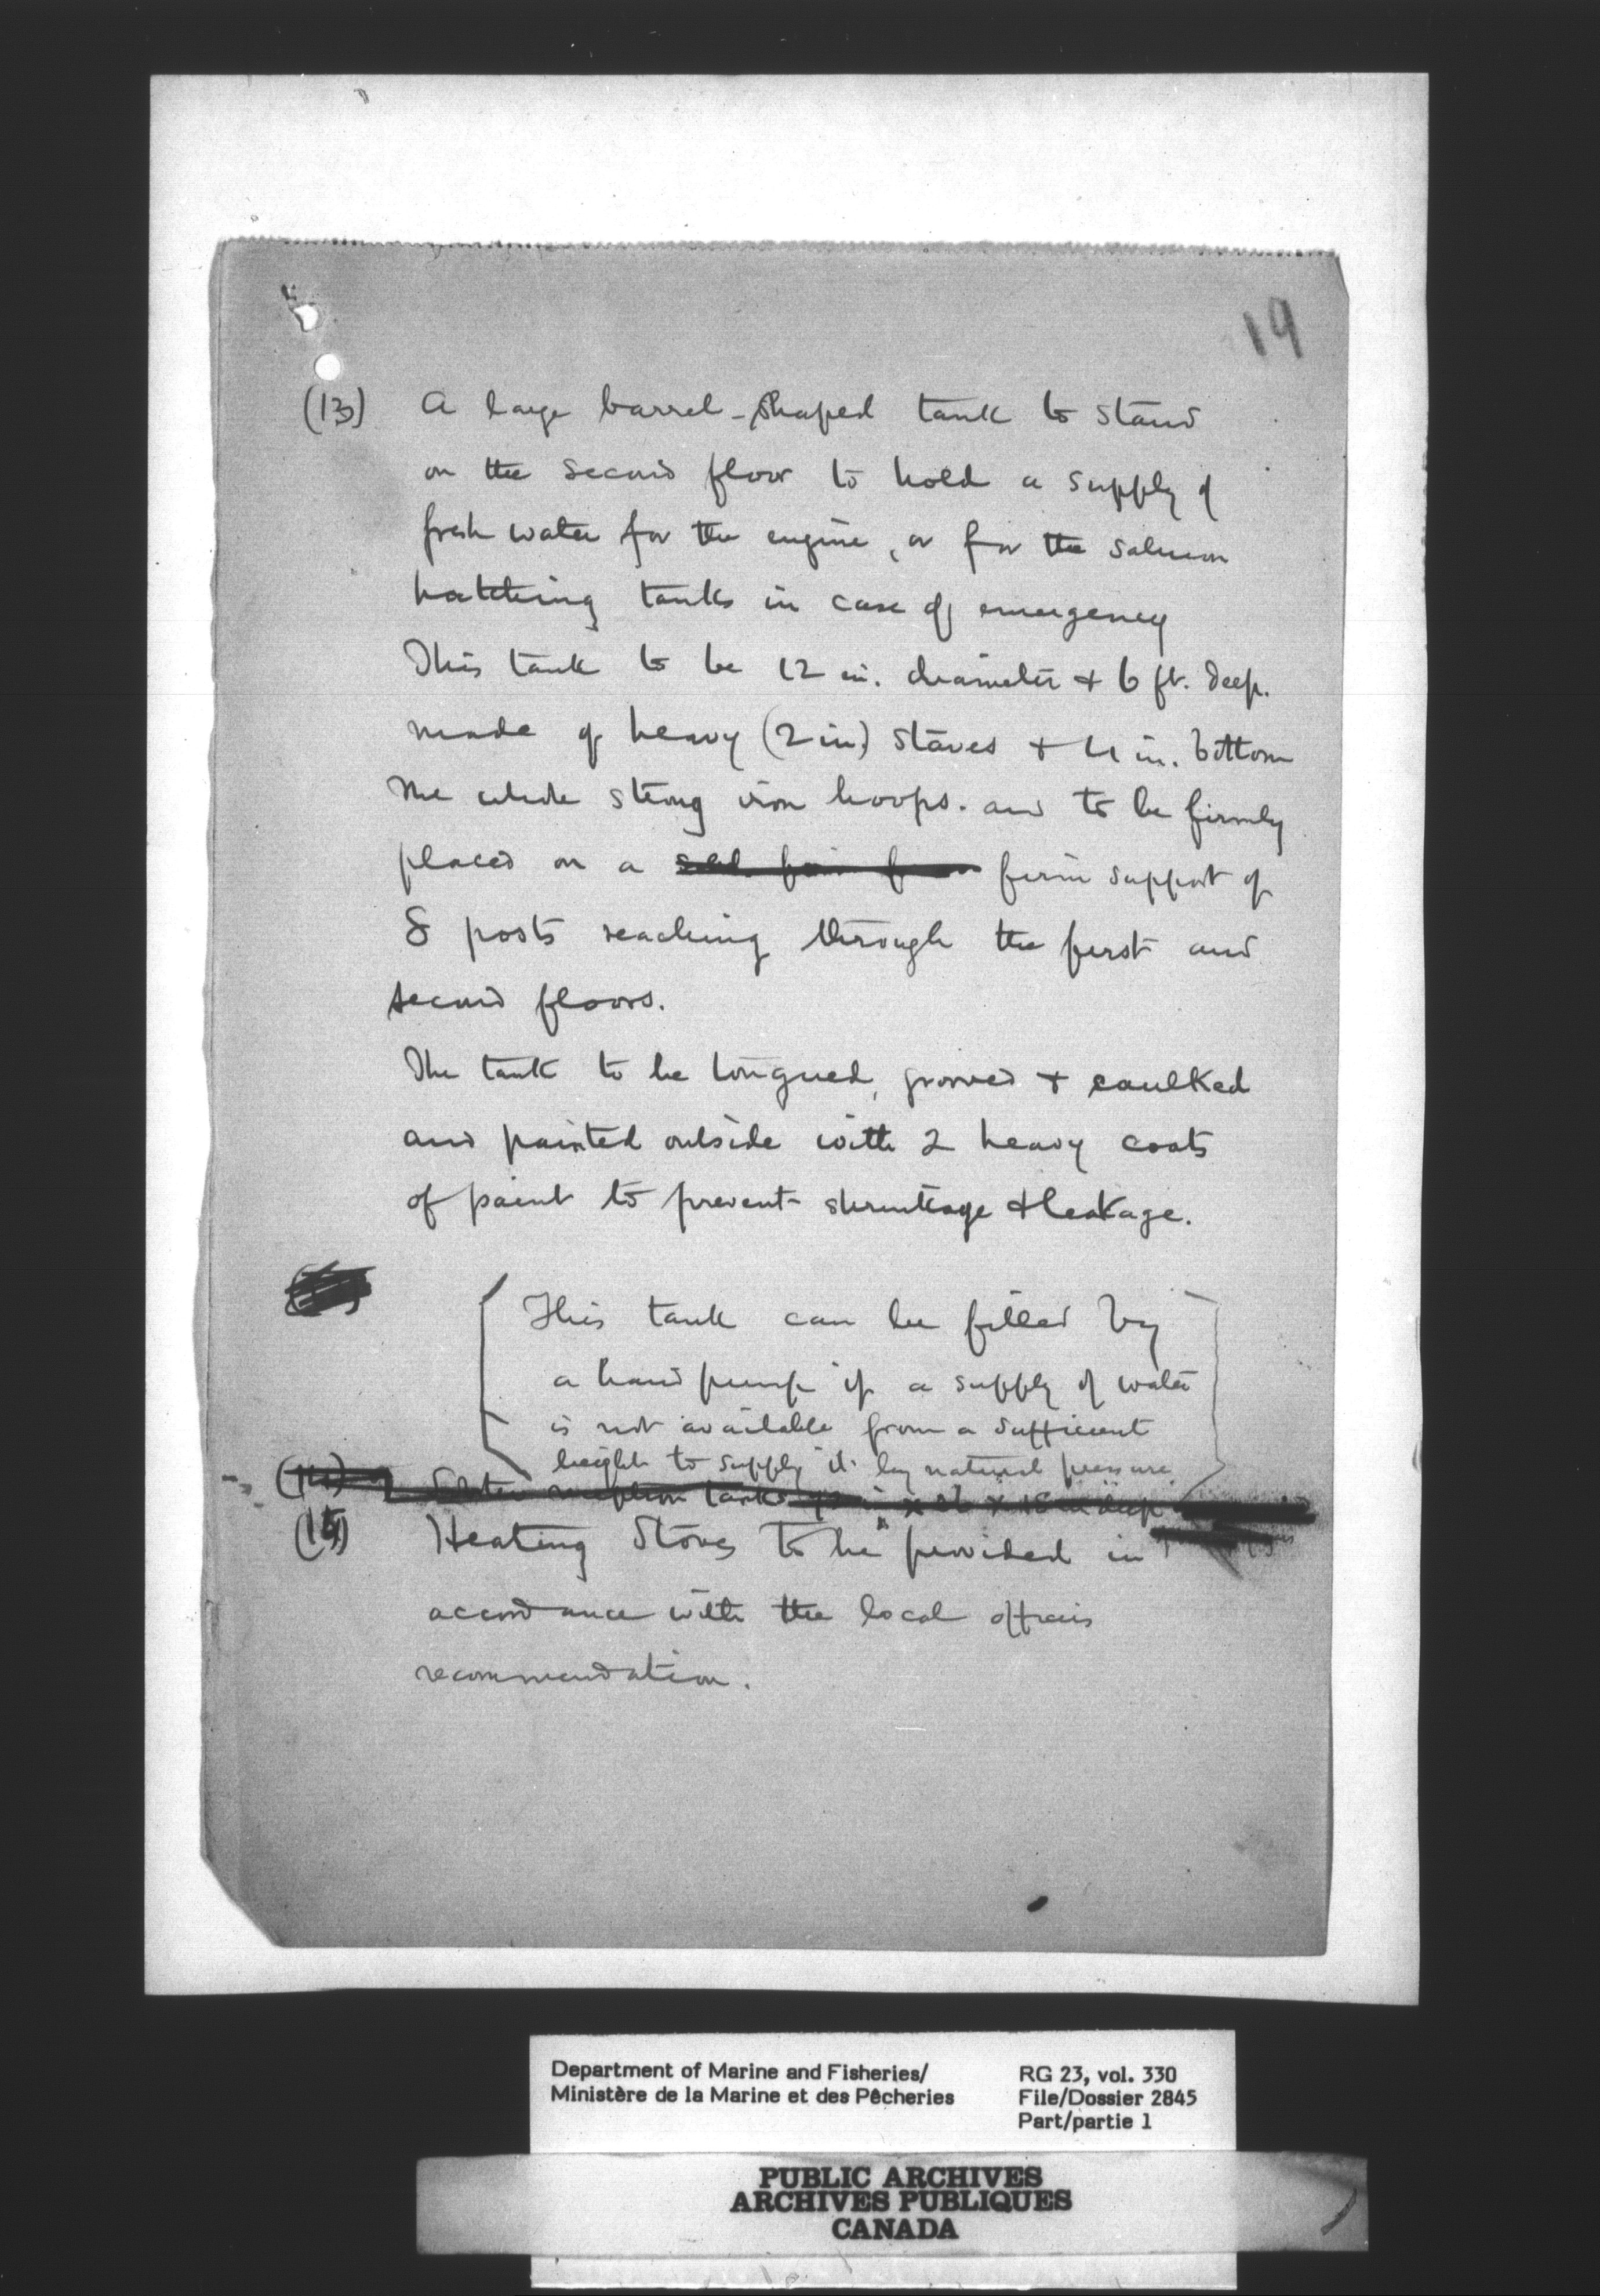 19
(13) A large barrel-shaped tank to stand
on the second floor to hold a supply of
fresh water for the engine, or for the salmon
hatching tanks in case of emergency
This tank to be 12 in. diameter + 6 ft. deep.
made of heavy (2 in.) staves + 4 in. bottom
The whole strong iron hoops. and to be firmly
placed on a firm support of
8 posts reaching through the first and
second floors.
The tank to be tongued, grooved + caulked
and painted outside with 2 heavy coats
of paint to prevent shrinkage + leakage.
This tank can be filled by
a hand pump if a supply of water
is not available from a sufficient
height to supply it by natural pressure
(14) reception tanks
(15) Heating Stoves to be provided in
accordance with the local officers
recommendation.
Department of Marine and Fisheries/
Ministère de la Marine et des Pêcheries
RG 23, vol. 330
File/Dossier 2845
Part/partie 1
PUBLIC ARCHIVES
ARCHIVES PUBLIQUES
CANADA